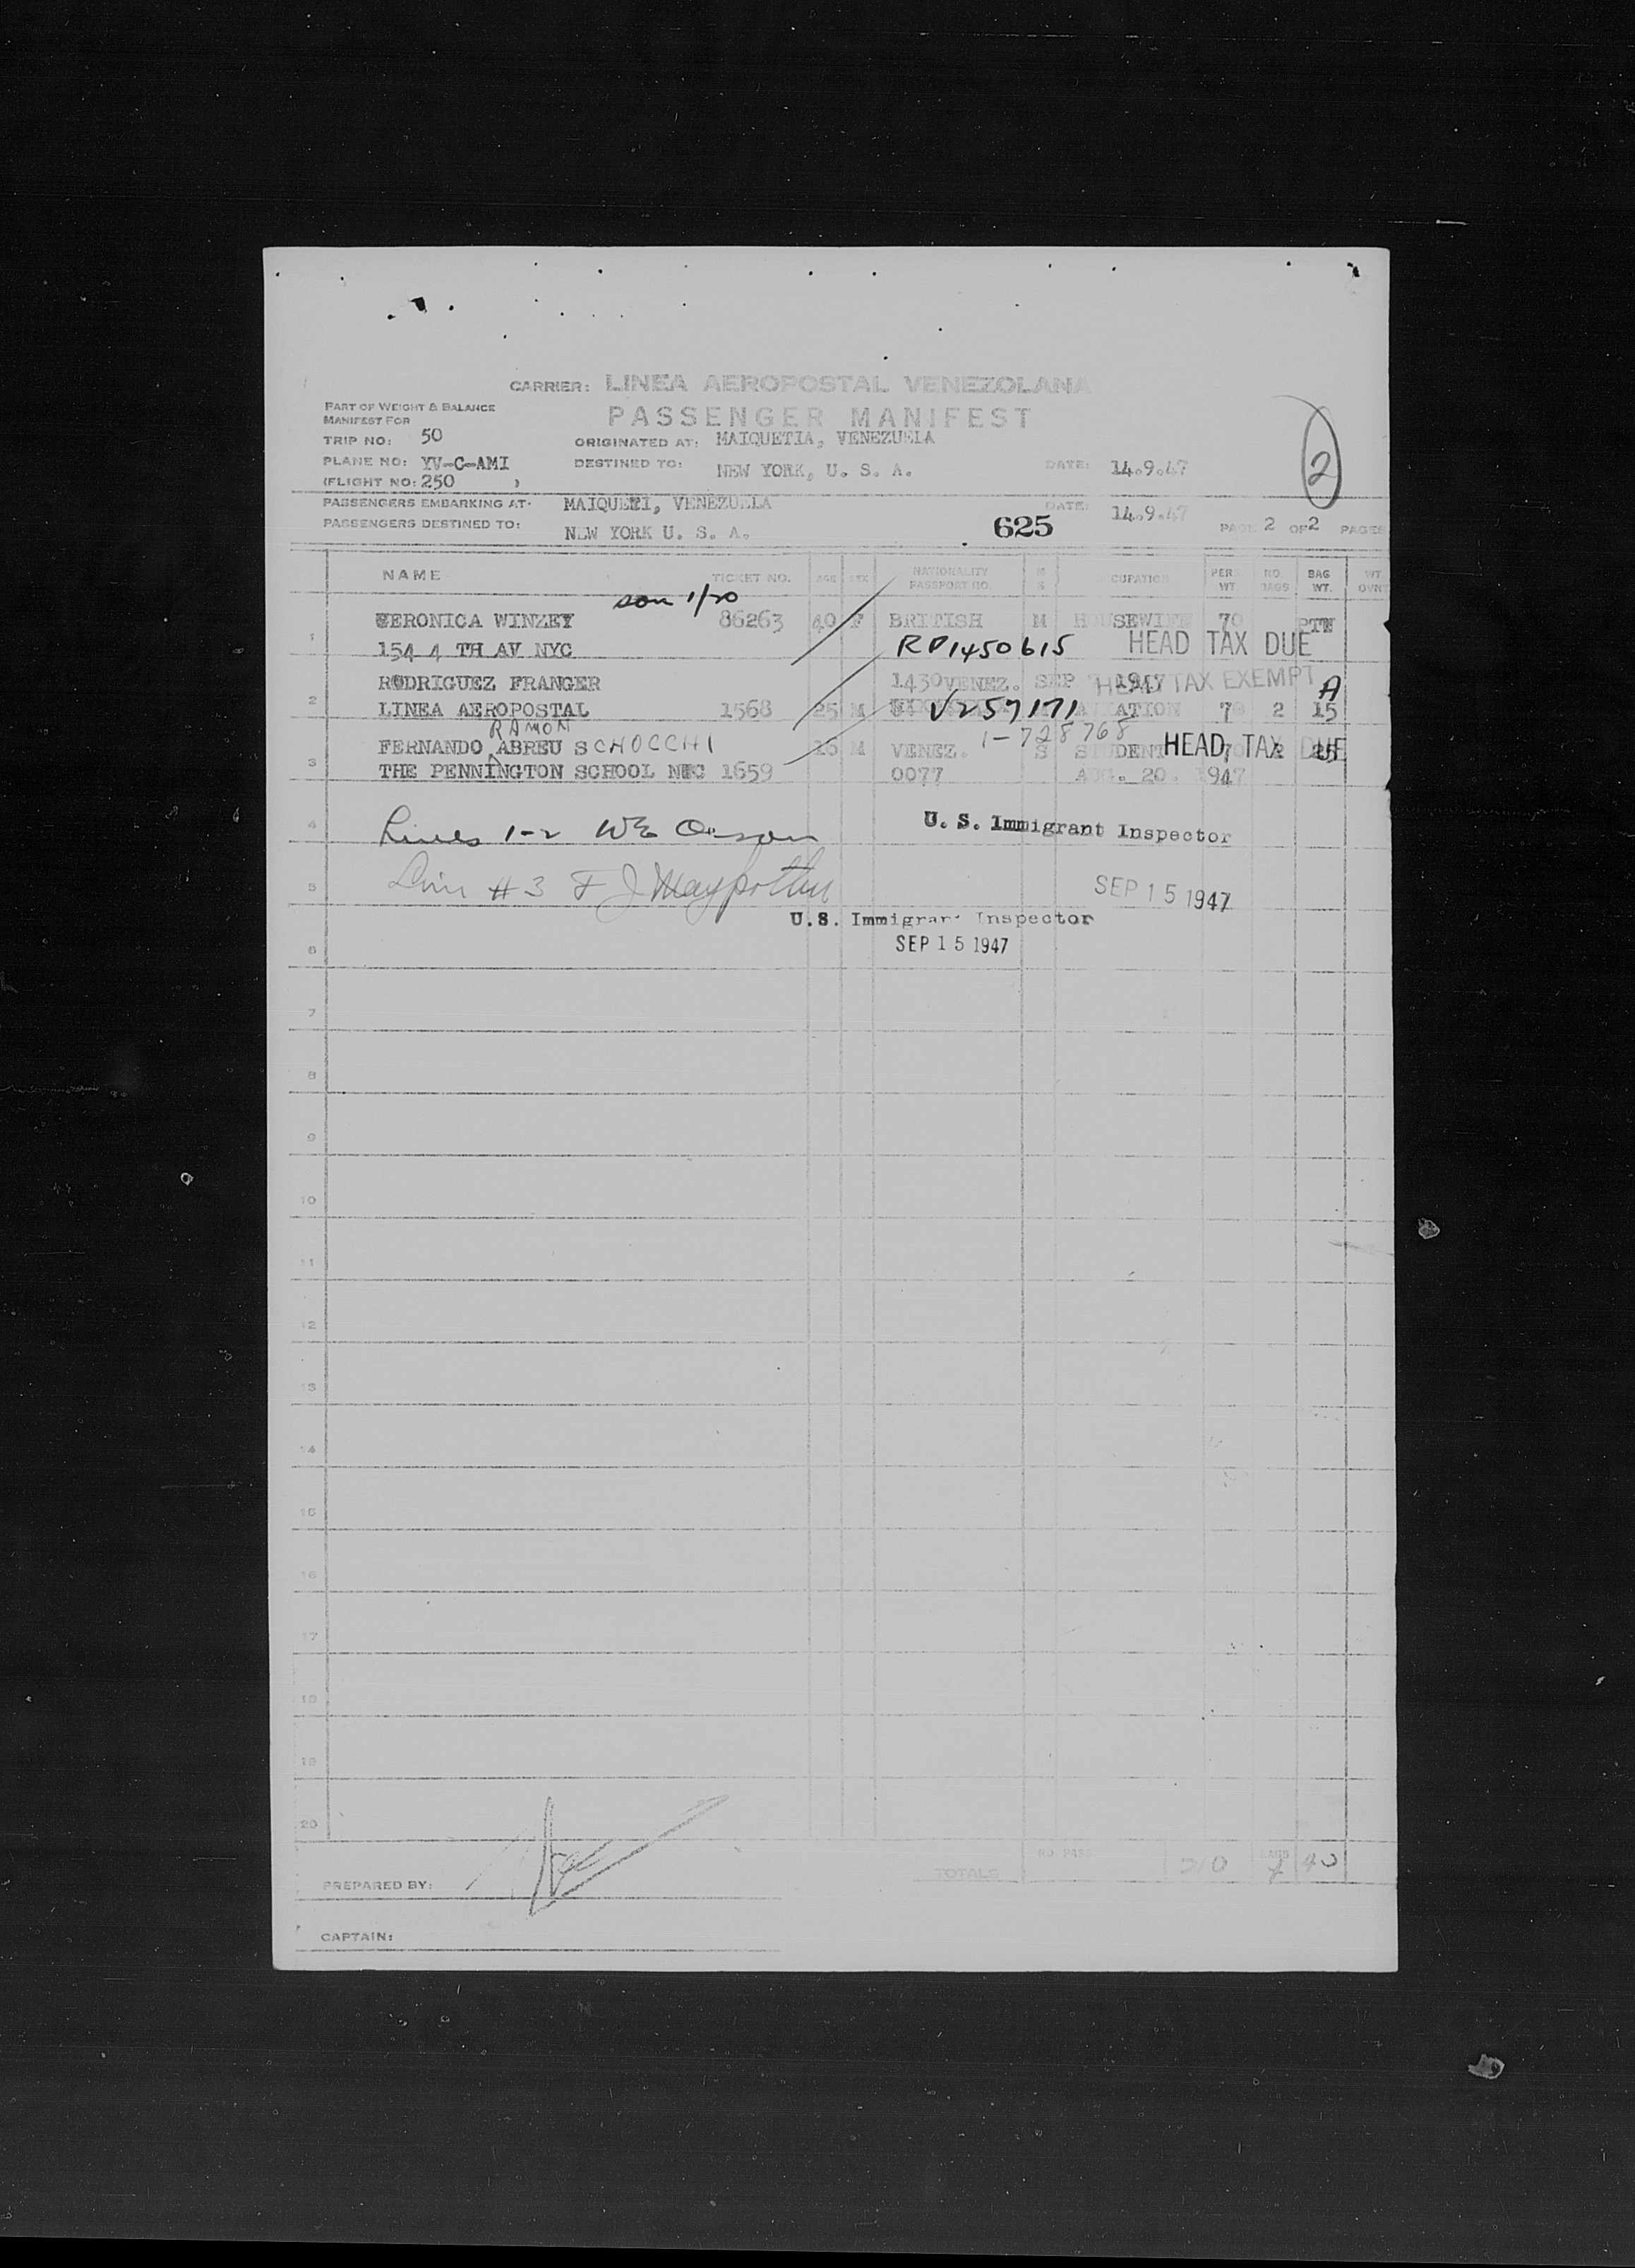 CARRIER: LINEA AEROPOSTAL VENEZOLANA
PART OF WEIGHT & BALANCE
MANIFEST FOR
PASSENGER MANIFEST
TRIP NO: 50
ORIGINATED AT: MAIQUETIA, VENEZUELA
PLANE NO: YV-C-AMI
DESTINED TO: NEW YORK, U. S. A.
DATE: 14.9.47
2
(FLIGHT NO: 250 )
PASSENGERS EMBARKING AT: MAIQUETI, VENEZUELA
DATE: 14.9.47
PASSENGERS DESTINED TO: NEW YORK U. S. A.
625
PAGE 2 OF 2 PAGES
NAME TICKET NO. AGE SEX NATIONALITY PASSPORT NO. M S OCCUPATION PER WT NO. BAGS BAG WT. WT. OVER
son 1/20
1 VERONICA WINZEY 86263 40 F BRITISH M HOUSEWIFE 70
154 4 TH AV NYC RP1450615 HEAD TAX DUE
2 RODRIGUEZ FRANGER 1430 VENEZ. SEP 1947 HEAD TAX EXEMPT A
LINEA AEROPOSTAL 1568 25 M V257171 7 2 15
RAMON
3 FERNANDO ABREU SCHOCCHI 16 M VENEZ. 1-728768 S STUDENT HEAD TAX DUE 70 2 25
THE PENNINGTON SCHOOL 1659 0077 AUG. 20. 1947
4 Lines 1-2 U. S. Immigrant Inspector
5 Line #3 F J SEP 15 1947
U.S. Immigrant Inspector
6 SEP 15 1947
7
8
9
10
11
12
13
14
15
16
17
18
19
20
TOTALS NO. PASS 210 BAGS 4 40
PREPARED BY:
CAPTAIN: